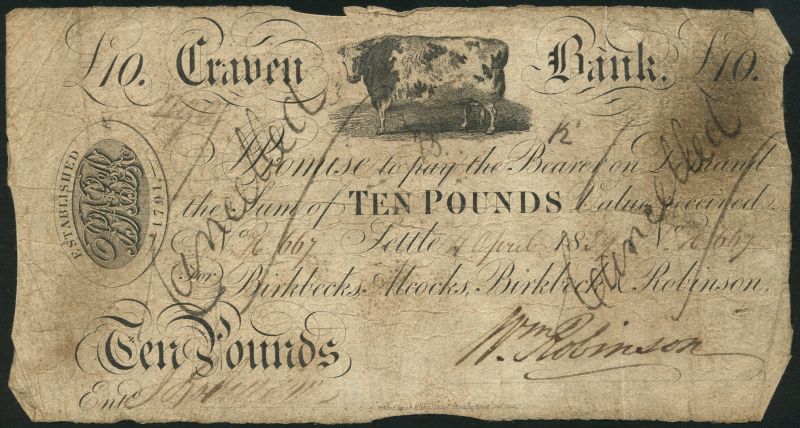 £10. Craven Bank. £10.
ESTABLISHED 1791
I Promise to pay the Bearer on Demand
the Sum of TEN POUNDS Value received
No. 667 Settle April 18 No. 667
For Birkbecks, Alcocks, Birkbeck & Robinson,
Wm. Robinson
Ten Pounds
Entd.
Cancelled
Cancelled